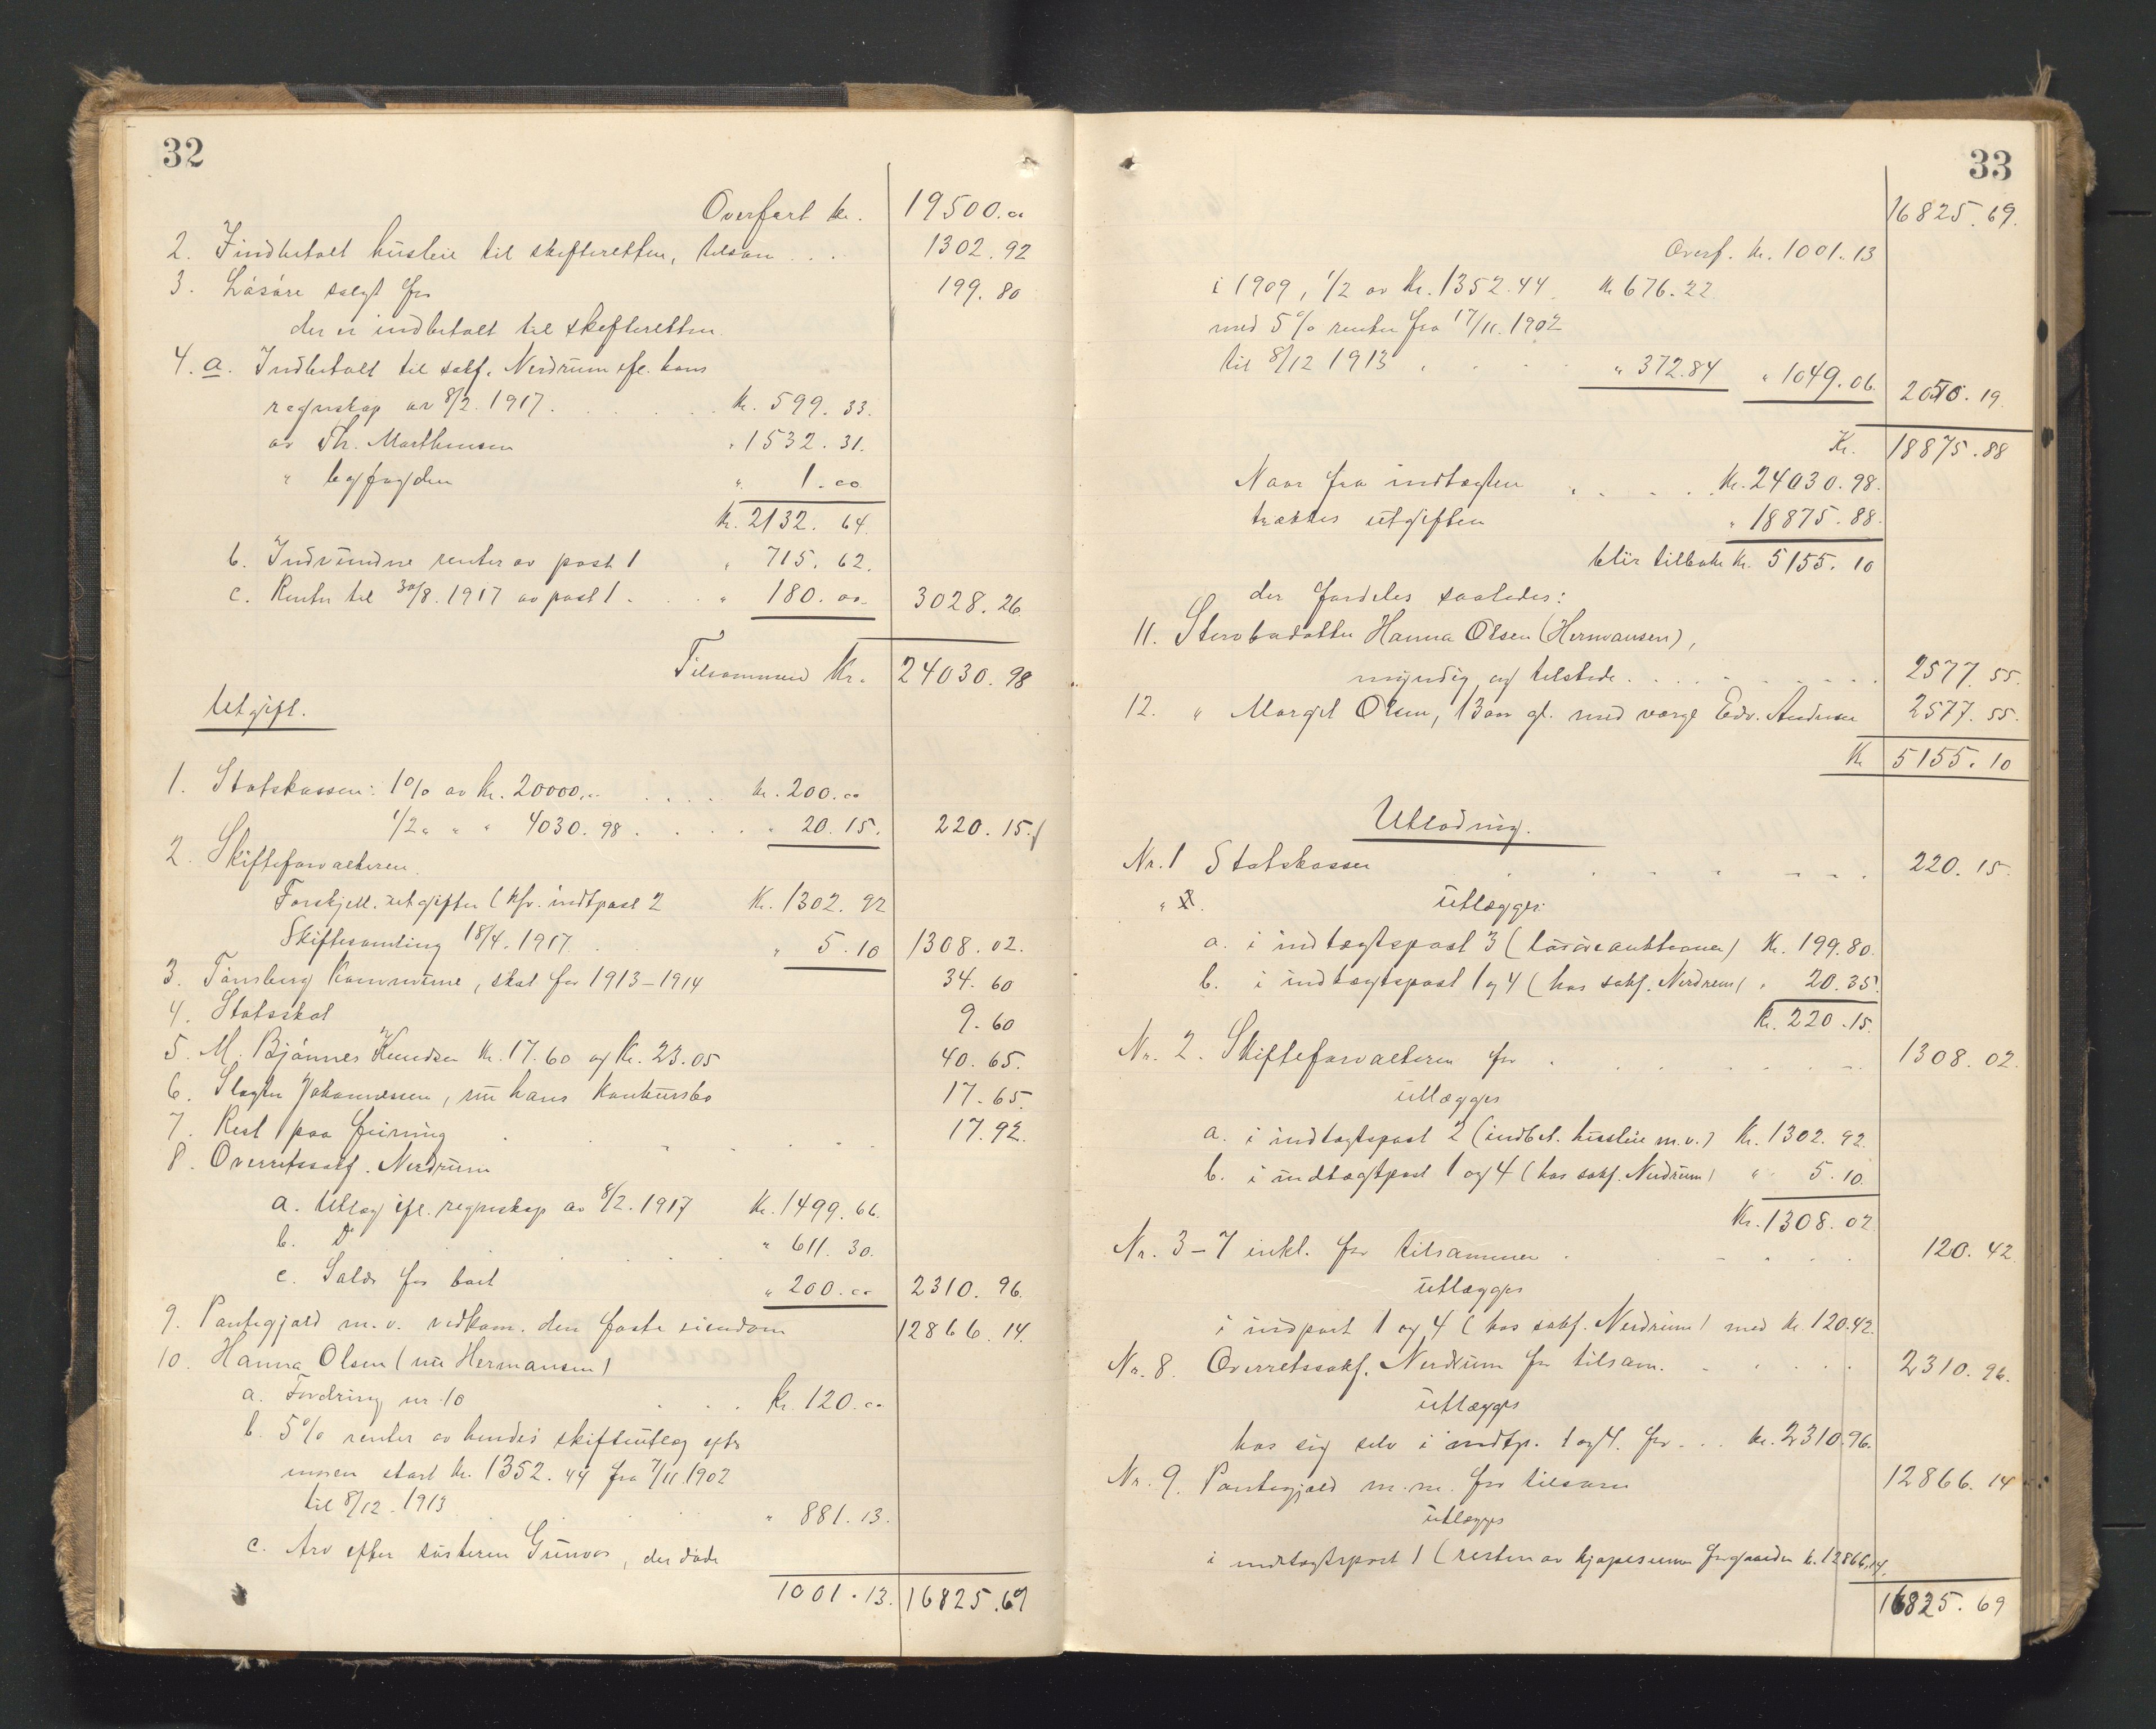 32
Overført kr. 19500.00
2. Indbetalt husleie til skifteretten, tilsam. . . 1302.92
3. Løsøre solgt for 199.80
der er indbetalt til skifteretten.
4. a. Indbetalt til sakf. Nerdrum ifl. hans
regnskap av 8/2. 1917. . . . . . kr. 599.33.
av Th. Marthinsen " 1532.31.
" byfogden " 1.00
Kr. 2132.64.
b. Indvundne renter av post 1 " 715.62.
c. Renter til 30/8. 1917 av post 1 . . " 180.00 3028.26
Tilsammen Kr. 24030.98
Utgift.
1. Statskassen: 1% av kr. 20000,00 . . . . kr. 200.00
1/2 " " " 4030.98 . . . . " 20.15. 220.15.
2. Skifteforvalteren.
Forskjell. utgifter (kfr. indtpost 2 Kr. 1302.92
Skiftesamling 18/4. 1917. . " 5.10 1308.02.
3. Tønsberg Kommune, skat for 1913-1914 34.60
4. Statsskat 9.60
5. M. Bjønnes Knudsen kr. 17.60 og kr. 23.05 40.65.
6. Slagter Johannessen, nu hans konkursbo 17.65.
7. Rest paa feiring . . . . . 17.92.
8. Overretssakf. Nerdrum
a. Utlæg ifl. regnskap av 8/2. 1917 kr. 1499.66.
b. Do . . . . " 611.30.
c. Salær for boet " 200.00 2310.96.
9. Pantegjæld m.v. vedkom. den faste eiendom 12866.14.
10. Hanna Olsen (nu Hermansen)
a. Fordring nr. 10 . . . kr. 120.00
b. 5% renter av hendes skifteutlæg efter
moren stort kr. 1352.44 fra 7/11.1902
til 8/12. 1913 . . . . " 881.13.
c. Arv efter søsteren Gunvor, der døde
1001.13. 16825.69
33
16825.69.
Overf. kr. 1001.13
i 1909, 1/2 av kr. 1352.44 kr 676.22
med 5% renter fra 17/11. 1902
til 8/12 1913 . . . . " 372.84 " 1049.06. 2050.19.
Kr. 18875.88
Naar fra indtægten . . . . kr. 24030.98.
trækkes utgiften " 18875.88.
blir tilbake kr. 5155.10
der fordeles saaledes:
11. Stervbodatter Hanna Olsen (Hermansen),
myndig og tilstede. . . . . . . . 2577.55.
12. " Margit Olsen, 13 aar gl. med værge Edv. Andersen 2577.55.
Kr 5155.10
Utlodning.
Nr. 1 Statskassen . . . . . . . 220.15.
" 2. utlægges:
a. i indtægtspost 3 (løsøreauktionen) Kr. 199.80.
b. i indtægtspost 1 og 4 (hos sakf. Nerdrum) " 20.35.
Kr. 220.15.
Nr. 2. Skifteforvalteren for . . . . . . . 1308.02.
utlægges
a. i indtægtspost 2 (indbet. husleie m.v.) Kr. 1302.92.
b. i indtægtpost 1 og 4 (hos sakf. Nerdrum) " 5.10.
Kr. 1308.02
Nr. 3-7 inkl. for tilsammen . . . . . 120.42
utlægges
i indpost 1 og 4 (hos sakf. Nerdrum) med kr. 120.42.
Nr. 8. Overretssakf. Nerdrum for tilsam. . . . . . 2310.96.
utlægges
hos sig selv i indtp. 1 og 4. for . . . kr. 2310.96.
Nr. 9. Pantegjæld m.m. for tilsam 12866.14
utlægges
i indtægtspost 1 (resten av kjøpesummen for gaarden kr. 12866.14.
16825.69